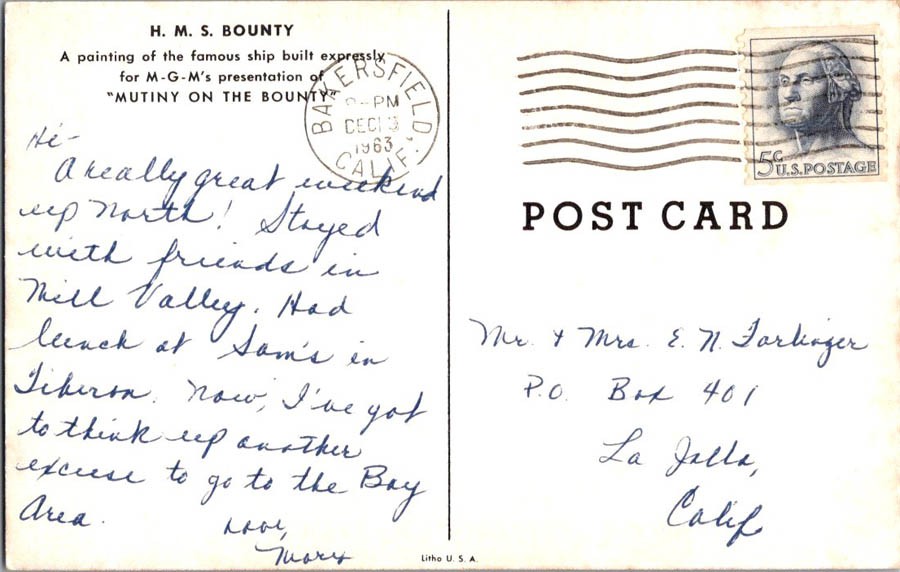 H. M. S. BOUNTY
A painting of the famous ship built expressly
for M-G-M's presentation of
"MUTINY ON THE BOUNTY"
BAKERSFIELD, CALIF.
PM
DEC 13
1963
5¢ U.S. POSTAGE
POST CARD
Hi-
A really great weekend
up North! Stayed
with friends in
Mill Valley. Had
lunch at Sam's in
Tiberon. Now, I've got
to think up another
excuse to go to the Bay
Area.
Love,
Mary
Mr. & Mrs. E. N.
P.O. Box 401
La Jolla,
Calif
Litho U. S. A.